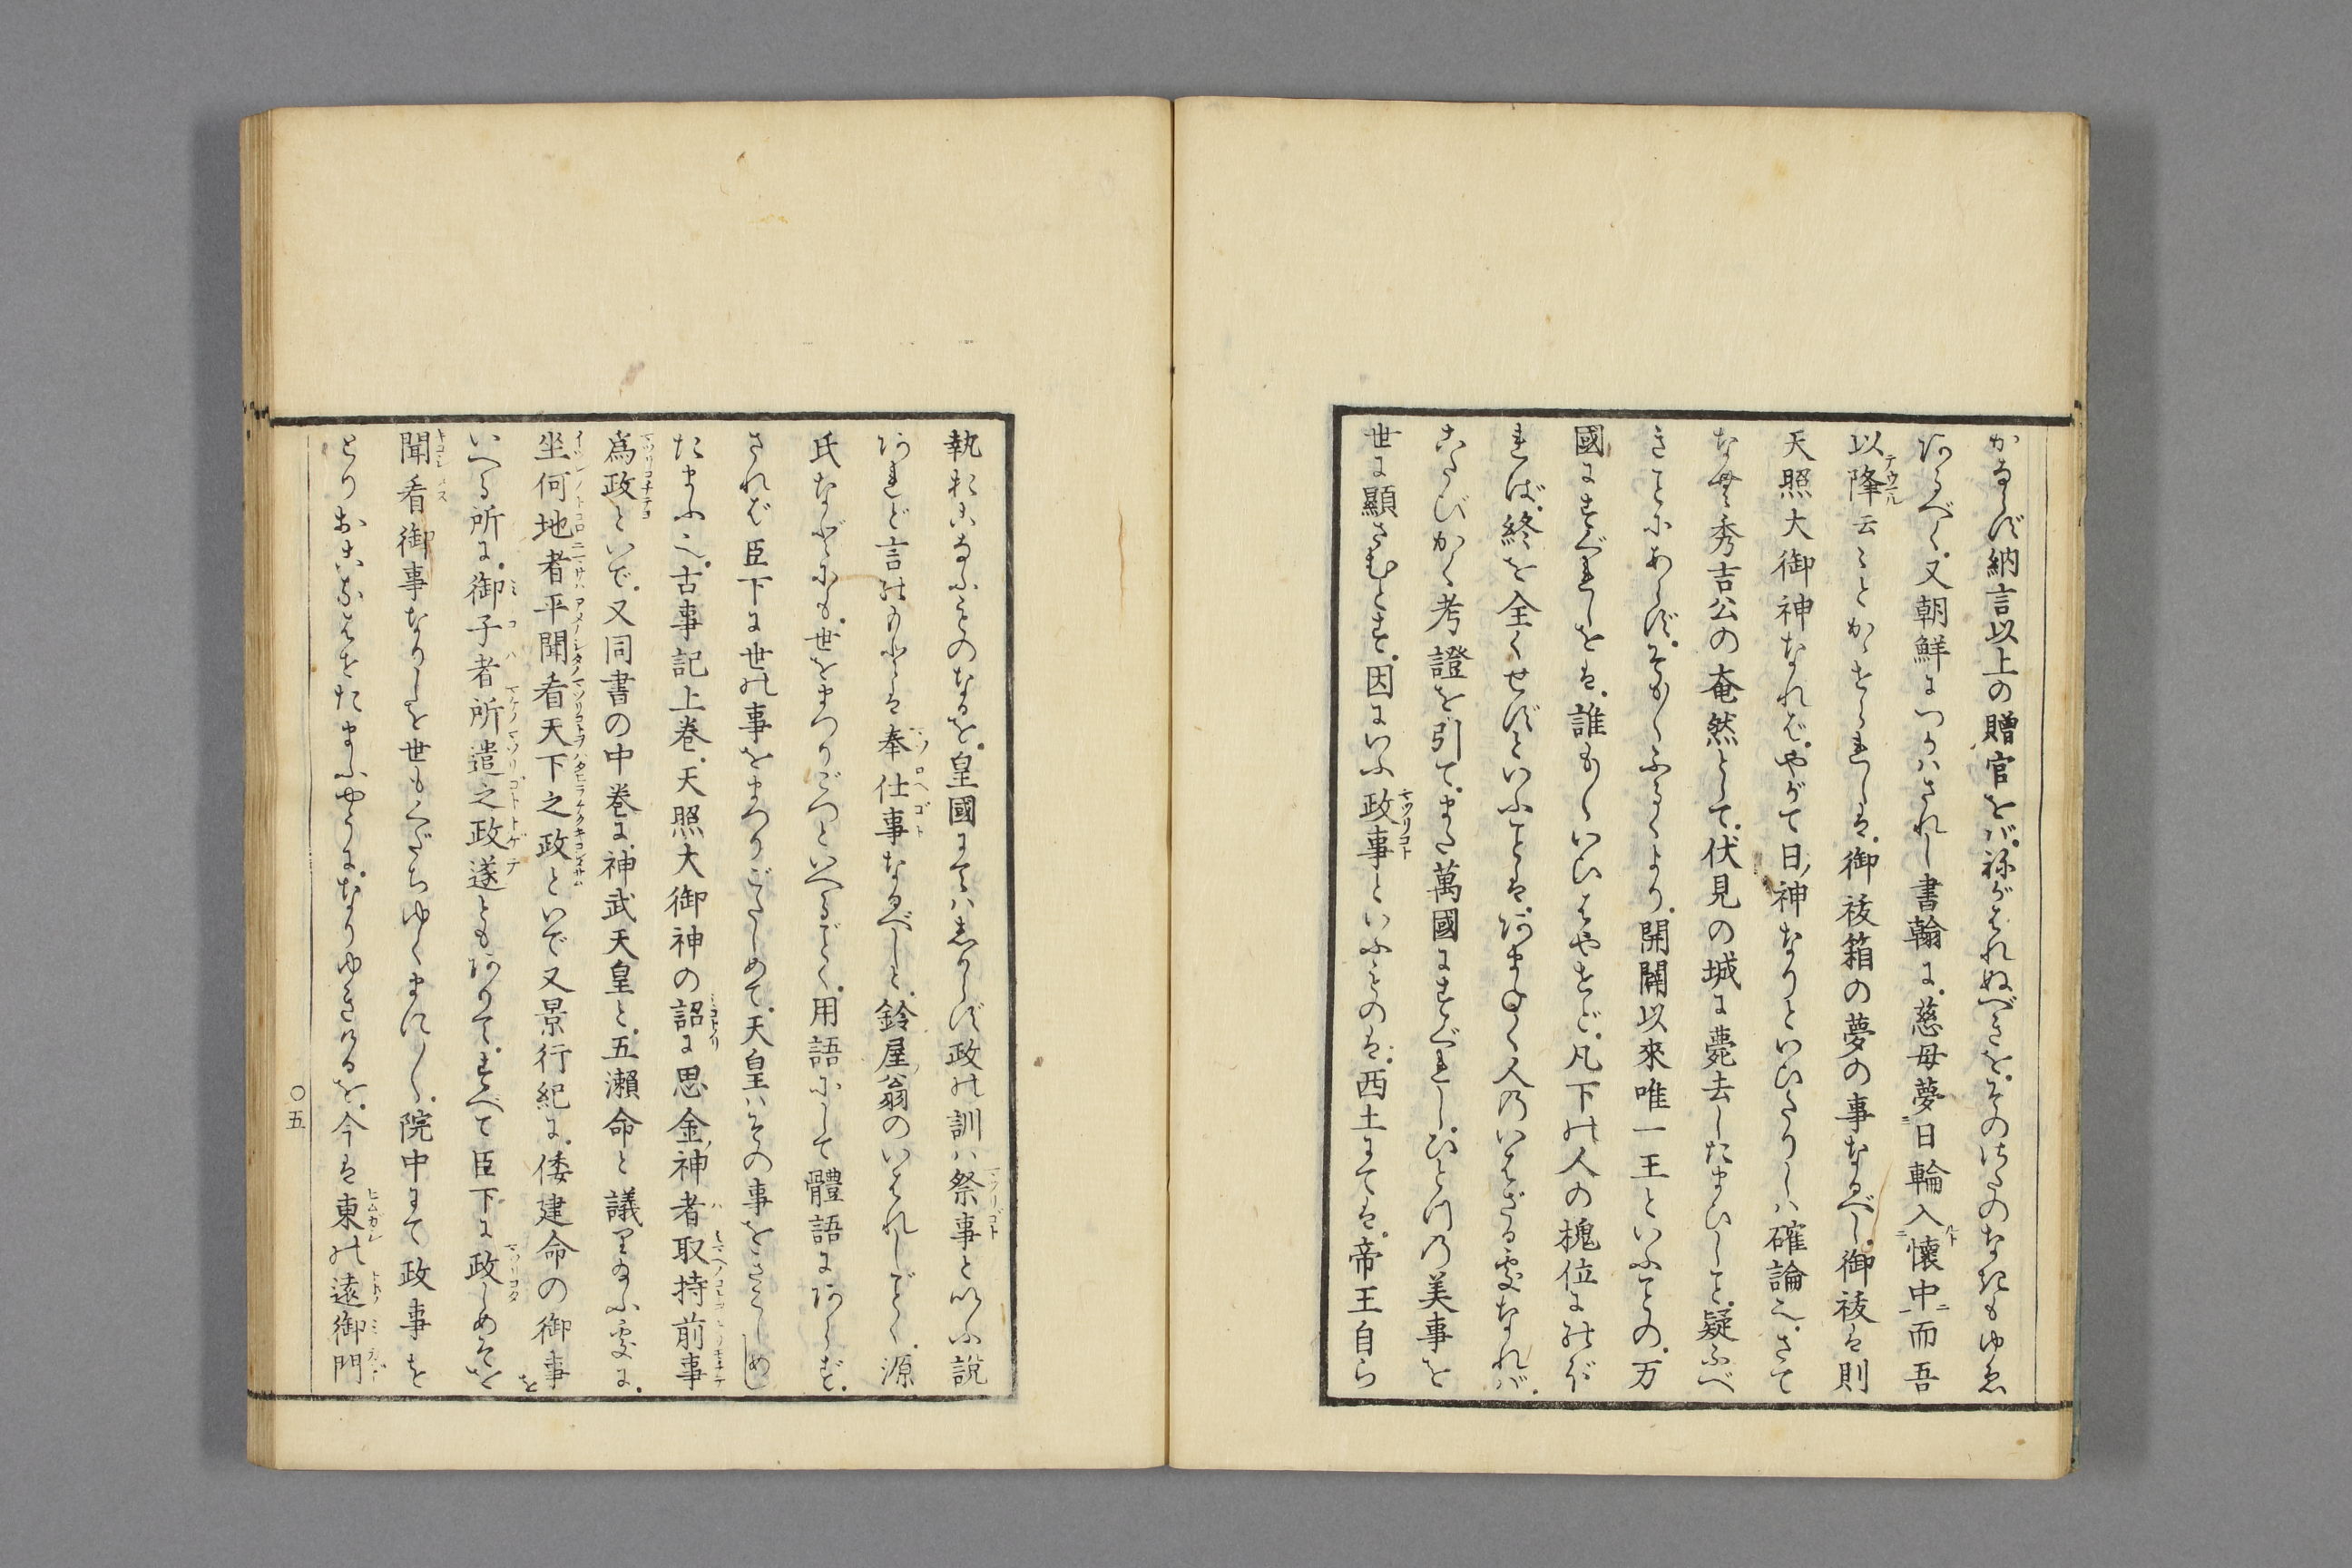 かならず納言以上の贈官をバ。祢がはれぬべきを。そのけたのなきもゆゑ
あるべく。又朝鮮につかハされし書翰に。慈母夢日輪入懐中而吾
以降云々とかゝせられしは。御祓箱の夢の事なるべし。御祓は則
天照大御神なれど。やがて日ノ神なりといひたりしハ確論也。さて
な母秀吉公の奄然として。伏見の城に薨去したまひしと。疑ふべ
きことにあらず。そもゝゝふるくより。開闢以來唯一王といふことの。万
國にすぐれしをは。誰もゝゝいひはやせど。凡下の人の槐位にのぼ
れば。終を全くせずといふことは。あまねく人乃いはざる處なれバ。
こたびかく考證を引て。また萬國にすぐれし。ひとつ乃美事を
世に顯さむとす。因にいふ政事といふものは。西土にては。帝王自ら
執おこなふものなるを。皇國にてハしからず政の訓ハ祭事といふ説
あれど言のもとは奉仕事なるべしと。鈴屋翁のいはれしごとく。源
氏などにも。世をまつりごつといへるごとく。用語にして體語にあらず。
されど臣下に世の事をまつりごたしめて。天皇ハその事をきこしめし
たまふ也。古事記上巻。天照大御神の詔に思金ノ神者取持前事
為政といで。又同書の中巻に。神武天皇と。五瀬命と議り給ふ處に。
坐何地者平聞看天下之政といで又景行紀に。倭建命の御事を
いへる所に。御子者所遣之政遂ともありて。すべて臣下に政しめそを
聞看御事なりしを世もくだちゆくまにゝゝ。院中にて政事を
とりおこなはせたまふやうになりゆきけるを。今は東の遠御門
○五